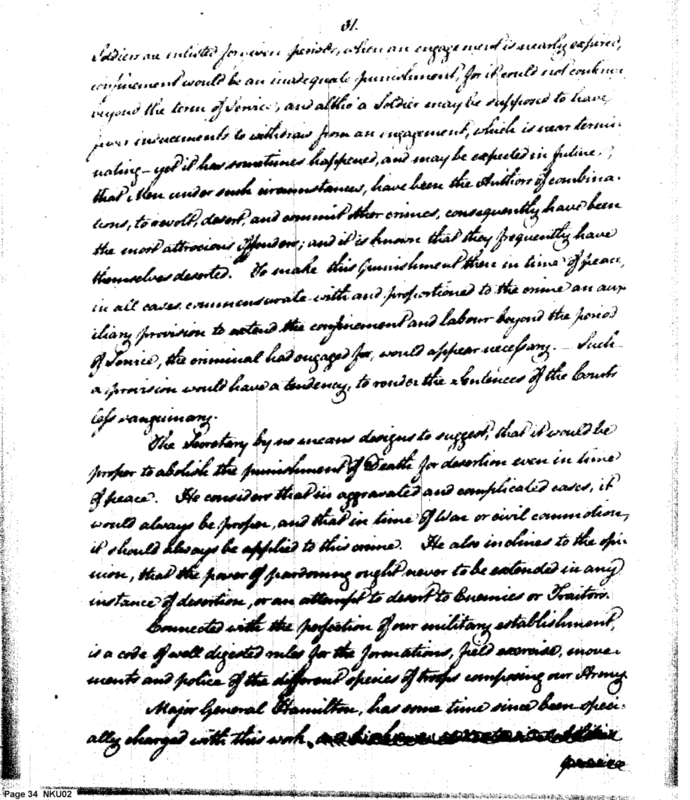 31.
Soldiers are enlisted for given periods, when an engagement is nearly expired,
confinement would be an inadequate punishment, for it could not continue
beyond the term of Service, and altho' a Soldier may be supposed to have
fewer inducements to withdraw from an engagement, which is near termi
nating – yet it has sometimes happened, and may be expected in future,
that Men under such circumstances, have been the Authors of combina-
tions, to revolt, desert, and commit other crimes, consequently have been
the most attrocious Offenders; and it is known that they frequently have
themselves deserted. To make this Punishment then in time of peace,
in all cases commensurate with and proportioned to the crime an aux
iliary provision to extend the confinement and labour beyond the period
of Service, the criminal had engaged for, would appear necessary. – Such
a provision would have a tendency, to render the Sentences of the Courts
less sanguinary.
The Secretary by no means designs to suggest, that it would be
proper to abolish the punishment of Death for desertion even in time
of peace. He considers that in aggravated and complicated cases, it
would always be proper, and that in time of War or civil commotion,
it should always be applied to this crime. He also inclines to the opi-
nion, that the power of pardoning ought never to be extended in any
instance of desertion, or an attempt to desert to Enemies or Traitors.
Connected with the perfection of our military establishment,
is a code of well digested rules for the formations, field exercise, move-
ments and police of the different species of troops composing our Army
Major General Hamilton, has some time since been speci-
ally charged with this work,
Page 34 NKU02